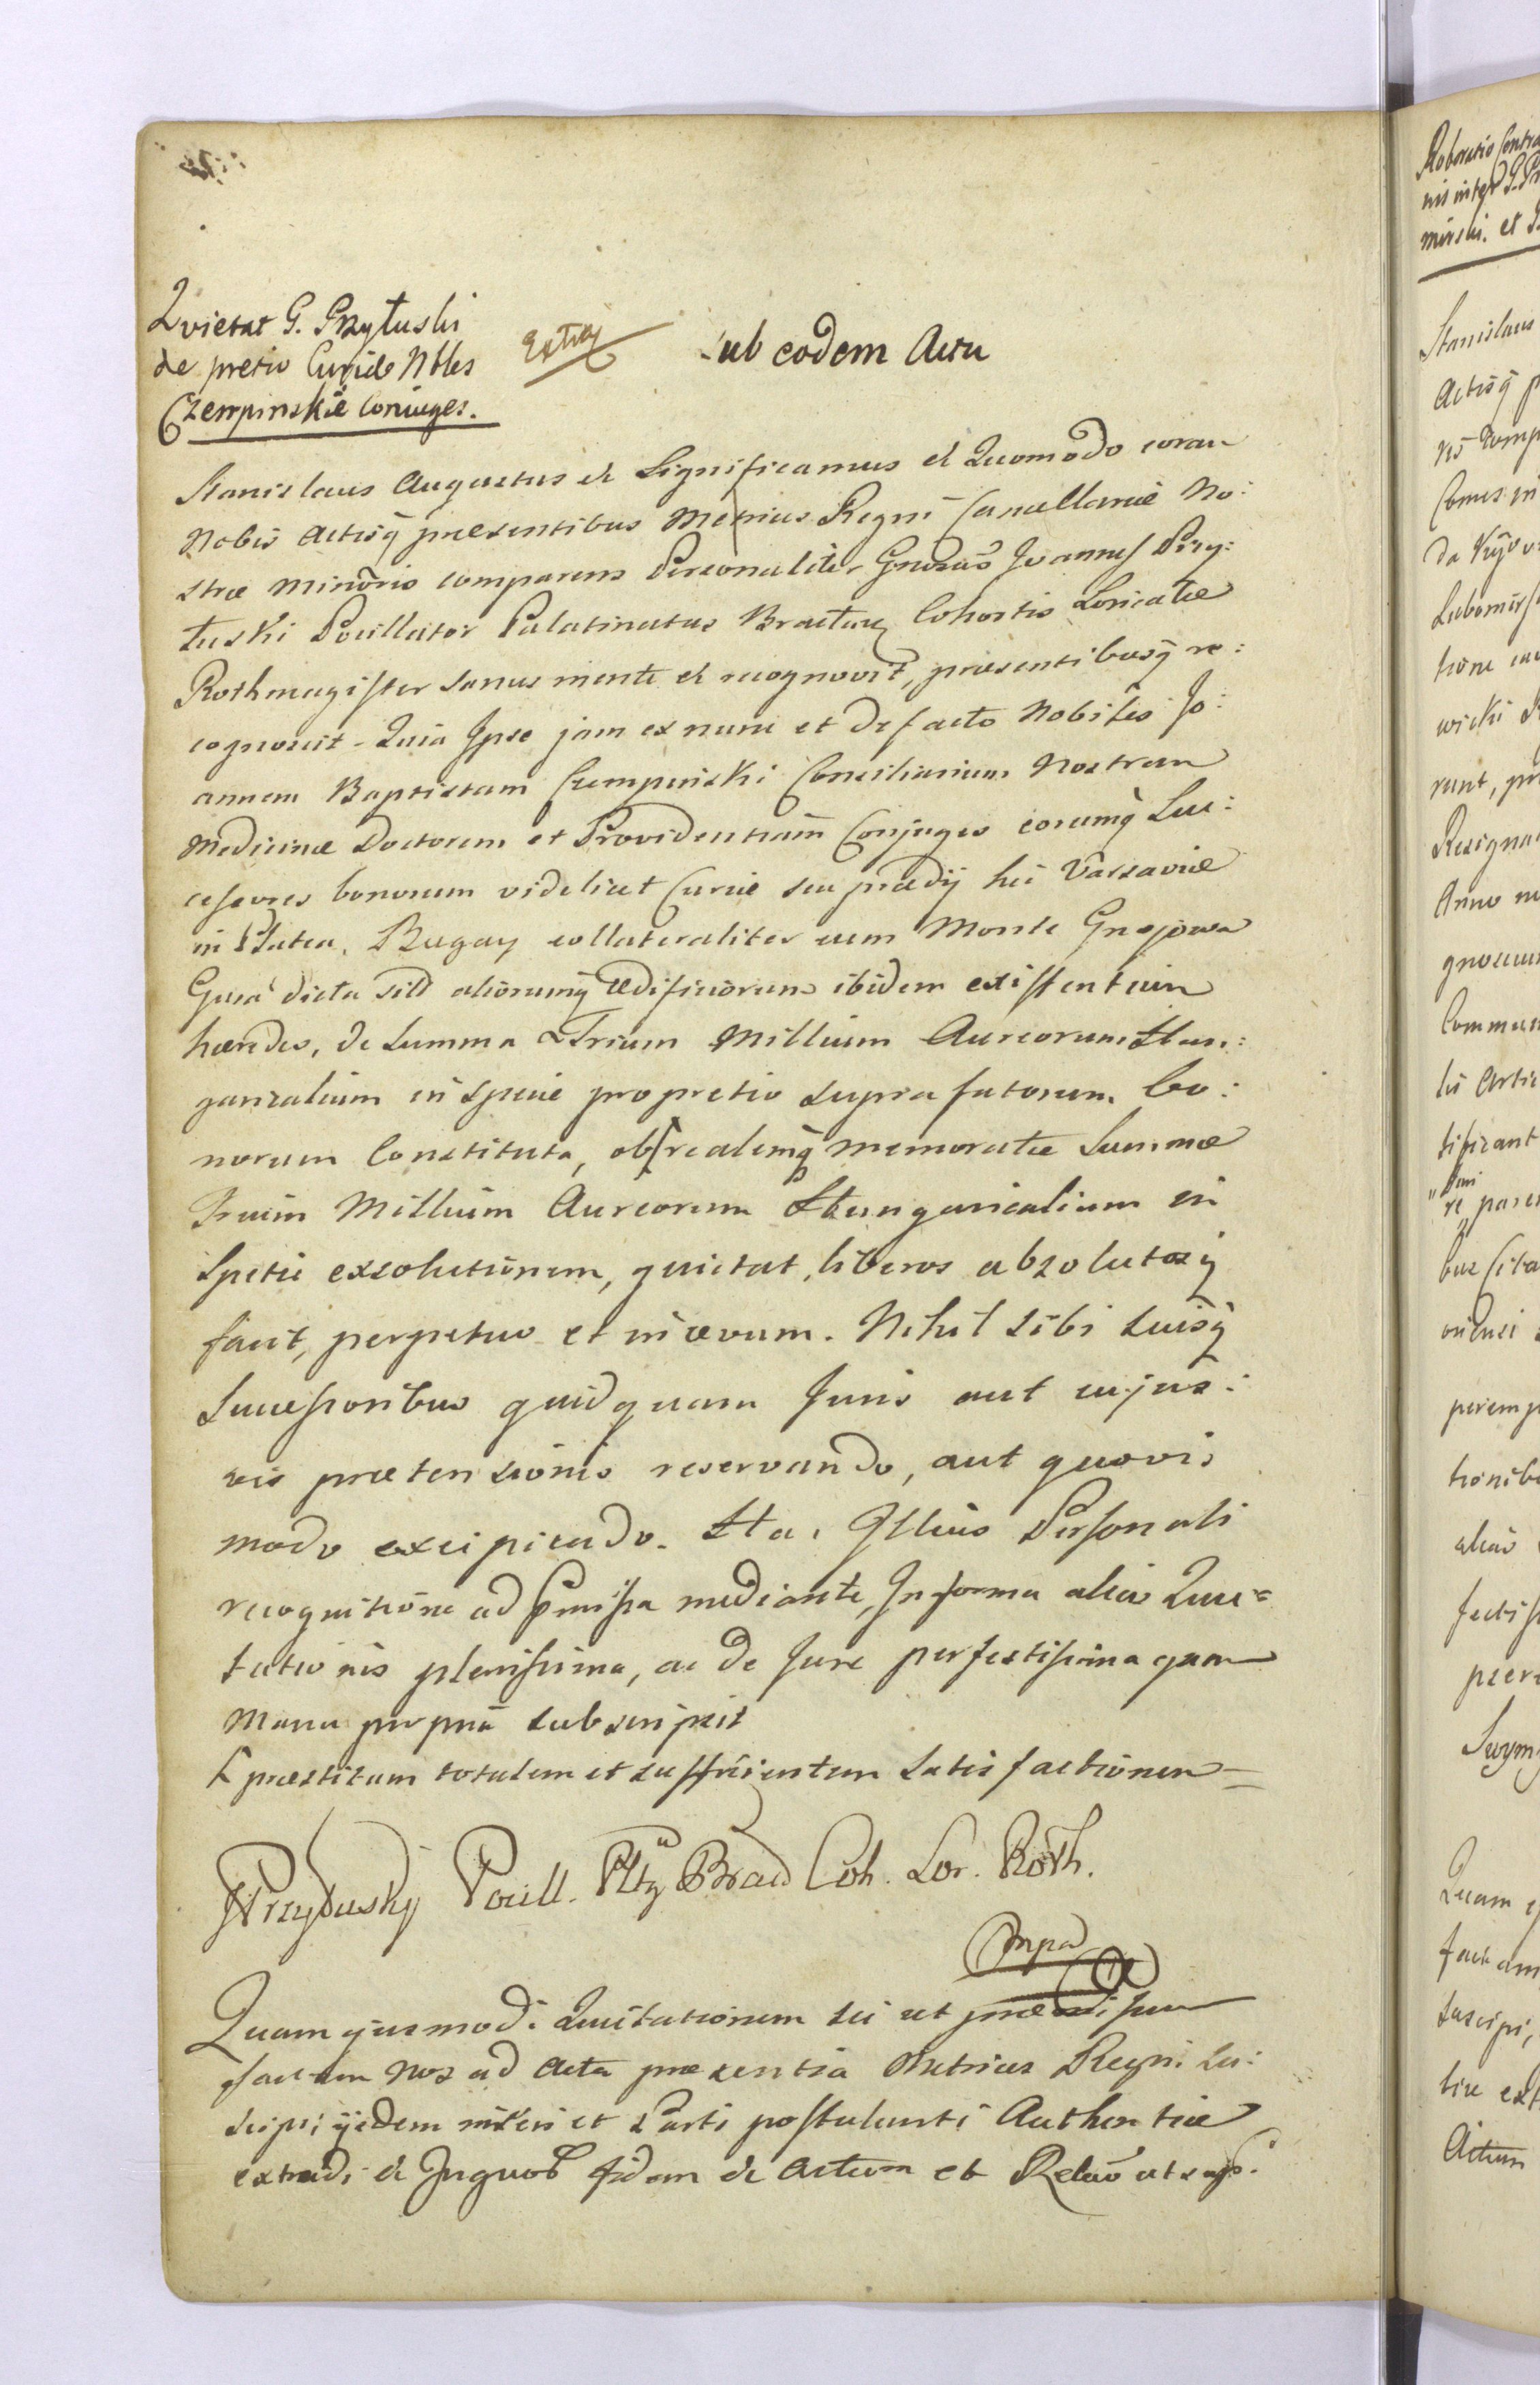 Quietat G. Przyłuski
de pretio Curiæ Nbles
Czempinskie Coniuges.
Extra
Sub eodem Actu
Stanislaus Augustus &c Significamus &c Quomodo coram
Nobis Actisq̃ præsentibus Metrices Regni Cancellariæ No:
stræ Minoris comparens Personaliter Gnrosus Joannes Przy:
łuski Pocillator Palatinatus Braclav Cohortis Loricatæ
Rothmagister sanus mente &c recognovit, præsentibusq̃ re:
cognoscit Quia Ipse jam ex nunc et de facto Nobiles Jo:
annem Baptistam Czempiński Consiliarium Nostrum
Medicinæ Doctorem et Providentiam Conjuges eorumq̃ Suc:
cessores bonorum videlicet Curiæ seu prædij hic Varsaviæ
in Platea Bugay collateraliter cum Monte Gnojowa
Gura dicta siti aliorumq̃ Ædificiorum ibidem existentium
hæredes, de Summa Trium Millium Aureorum Hun:
garicalium in specie pro pretio suprafatorum bo:
norum Constituta, ob realemq̃ memoratæ Summæ
Trium Millium Aureorum Hungaricalium in
Specie exsolutionem, quietat, liberos absolutosq̃
facit, perpetuo et in ævum. Nihil sibi suisq̃
Successoribus quidquam Juris aut cujus:
vis prætensionis reservando, aut quovis
modo excipiendo. Sta. Illius Personali
recognitione ad Pmissa mediante, In forma alias Quie:
tationis plenissima, ac de Jure perfectissima quam
Manu propria subscripsit
præstitam totalem et sufficientem Satisfactionem
JPrzyłusky Pocill. Pltg Brac Coh. Lor. Roth.
mpa
Quam ejusmodi Quietationem sic ut
factam Nos ad Acta præsentia Metrices Regni Su:
scipi ijsdem inseri et Parti postulanti Authentice
extradi &c In quor fidem &c Actum et Relaō ut sup:
Roboratio Contra
nis inter G. Pr
mirski. et
Stanislaus
Actisq̃ p
ns Comp
Comes in
da Kijov
Lubomirs
tione
wicki
runt, pr
Resigna
Anno
gnoscunt
Commun
lii Artic
tificant
re paren
bus Cita
peremp
tionib
alias
fectiss
Quam ej
fact am
suscipi,
tice ext
Actum